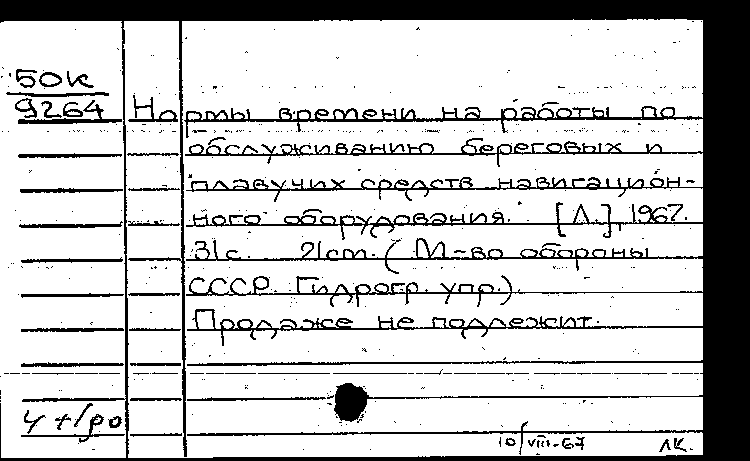 50к
9264 Нормы времени на работы по
обслуживанию береговых и
плавучих средств навигацион-
ного оборудования. [Л.], 1967.
31с. 21см. (М-во обороны
СССР. Гидрогр. упр.).
Продаже не подлежит.
10/VIII-67 ЛК.